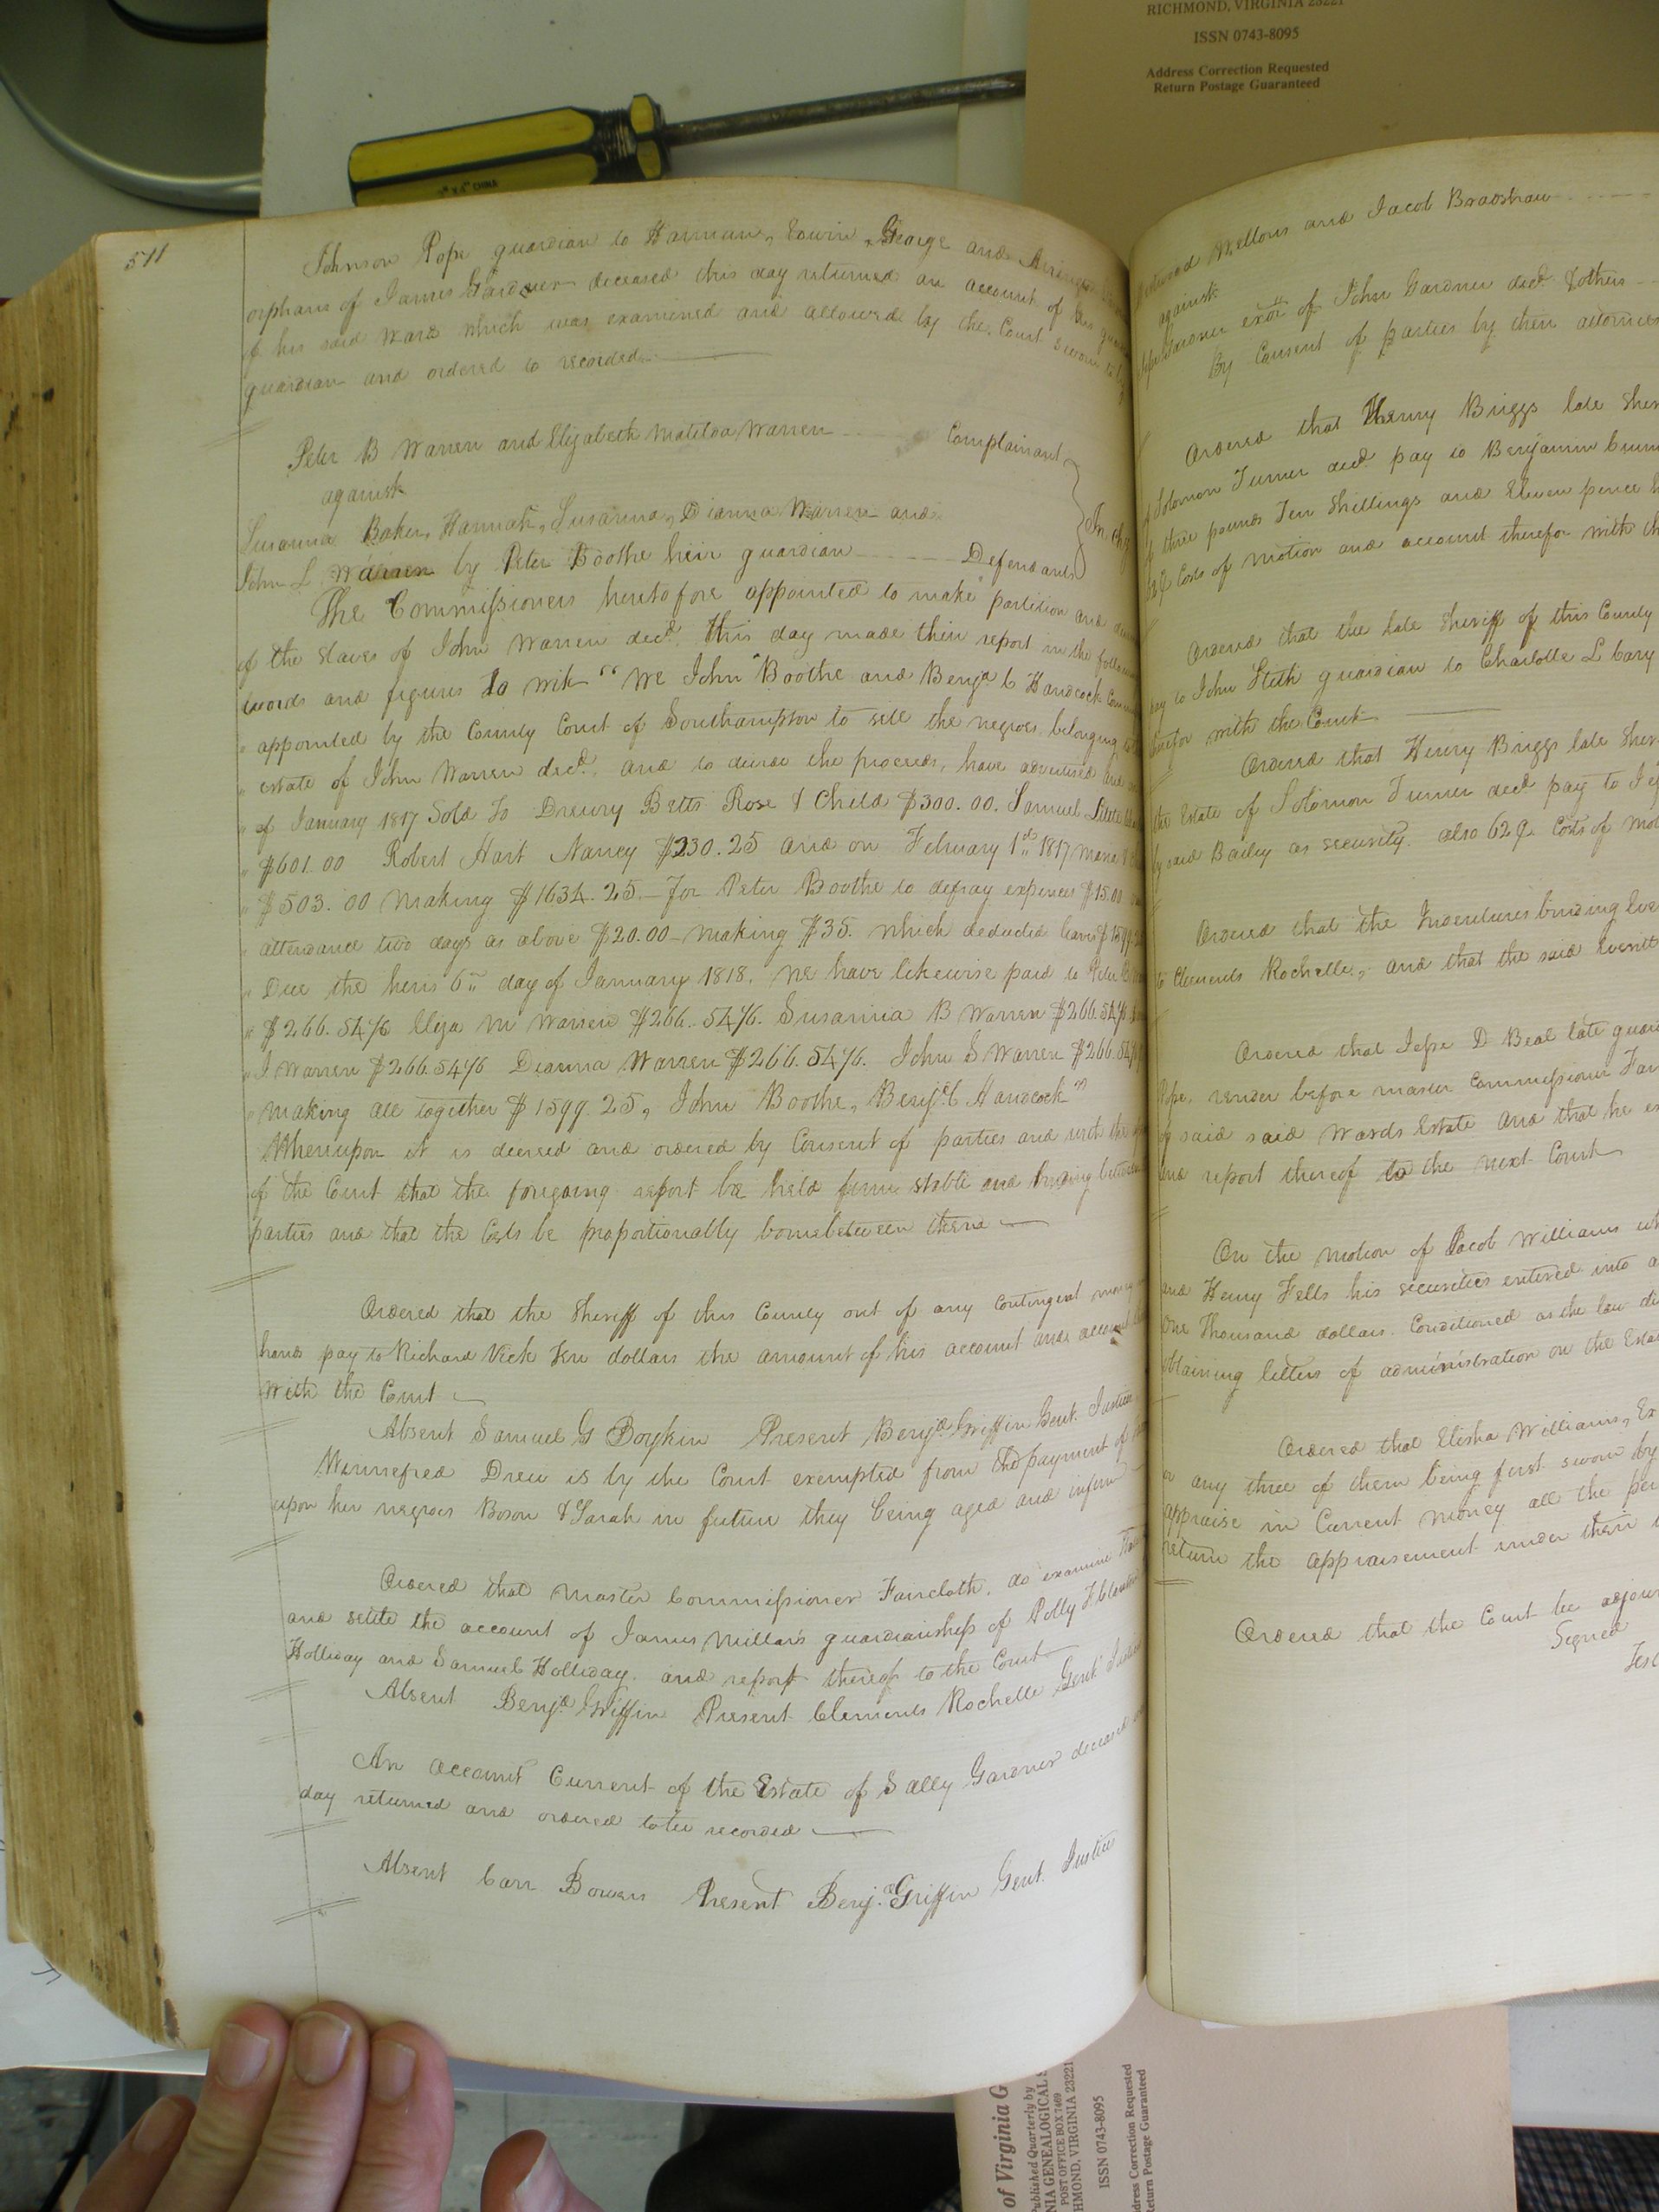 RICHMOND, VIRGINIA 23221
ISSN 0743-8095
Address Correction Requested
Return Postage Guaranteed
CHINA
511
Johnson Pope guardian to Edwin, George and
orphans of James Gardner deceased this day returned an account of his
of his said ward which was examined and allowed by the Court sworn to by
guardian and ordered to recorded
Peter B Warren and Elizabeth Matilda Warren Complainant
against
Susanna Baker, Hannah, Susanna, Dianna Warren and
John L Warren by Peter Boothe heir guardian Defendants
In Chy
The Commissioners heretofore appointed to make partition and
of the Slaves of John Warren decd. this day made their report in the
words and figures To wit "We John Boothe and Benja. C Handcock
" appointed by the County Court of Southampton to sell the negroes belonging
" estate of John Warren decd. and to divide the proceeds, have advertised and
" of January 1817 Sold to Drewry Betts Rose & Child $300.00. Samuel
" $601.00 Robert Hart Nancy $230.25 and on February 1st 1817
" $503.00 making $1634.25 — for Peter Boothe to defray expences $15.00
" attendance two days as above $20.00 — making $35. which deducted leaves $1599.25
" Due the heirs 6th day of January 1818, We have likewise paid to Peter
" $266.54 4/6 Eliza M Warren $266.54 4/6. Susanna B Warren $266.54 4/6
" J Warren $266.54 4/6 Dianna Warren $266.54 4/6. John S Warren $266.54
" making all together $1599.25, John Boothe, Benja. C Handcock"
Whereupon it is decreed and ordered by Consent of parties and with the
of the Court that the foregoing report be held firm stable and binding between
parties and that the Costs be proportionably borne between them
Ordered that the Sheriff of this County out of any Contingent money
hands pay to Richard Vick ten dollars the amount of his account and account
With the Court
Absent Samuel G Boykin Present Benja. Griffin Gent. Justice
Winnefred Drew is by the Court exempted from the payment of
upon her negroes Boson & Sarah in future they being aged and infirm
Ordered that Master Commissioner Faircloth, do examine
and settle the account of James Millars guardianship of Polly
Holliday and Samuel Holliday. and report thereof to the Court
Absent Benja. Griffin Present Clements Rochelle Gent. Justice
An account Current of the Estate of Sally Gardner deceased
day returned and ordered to be recorded
Absent Carr Bowers Present Benja. Griffin Gent. Justice
Mellons and Jacob Bradshaw
against
Gardner exor. of John Gardner decd. & others
By Consent of parties by their attornies
Ordered that Henry Briggs late
of Solomon Turner decd. pay to Benjamin
of three pounds Ten Shillings and Eleven pence
Costs of motion and account therefor with
Ordered that the late Sheriff of this County
pay to John Stith guardian to Charlotte L Cary
therefor with the Court
Ordered that Henry Briggs late
the Estate of Solomon Turner decd pay to
by said Bailey as security. also 62 ¢. Costs of
Ordered that the Indentures binding
to Clements Rochelle, and that the said
Ordered that Jesse D Beal late
Pope, render before master Commissioner
of said said Wards Estate And that he
and report thereof to the next Court
On the Motion of Jacob Williams
and Henry Fells his securities entered into
One Thousand dollars. Conditioned as the law
obtaining letters of administration on the
Ordered that Elisha Williams,
or any three of them being first sworn by
appraise in Current money all the
return the appraisement under their
Ordered that the Court be
Signed
of Virginia
Published Quarterly by
POST OFFICE BOX 7469
RICHMOND, VIRGINIA 23221
ISSN 0743-8095
Address Correction Requested
Return Postage Guaranteed